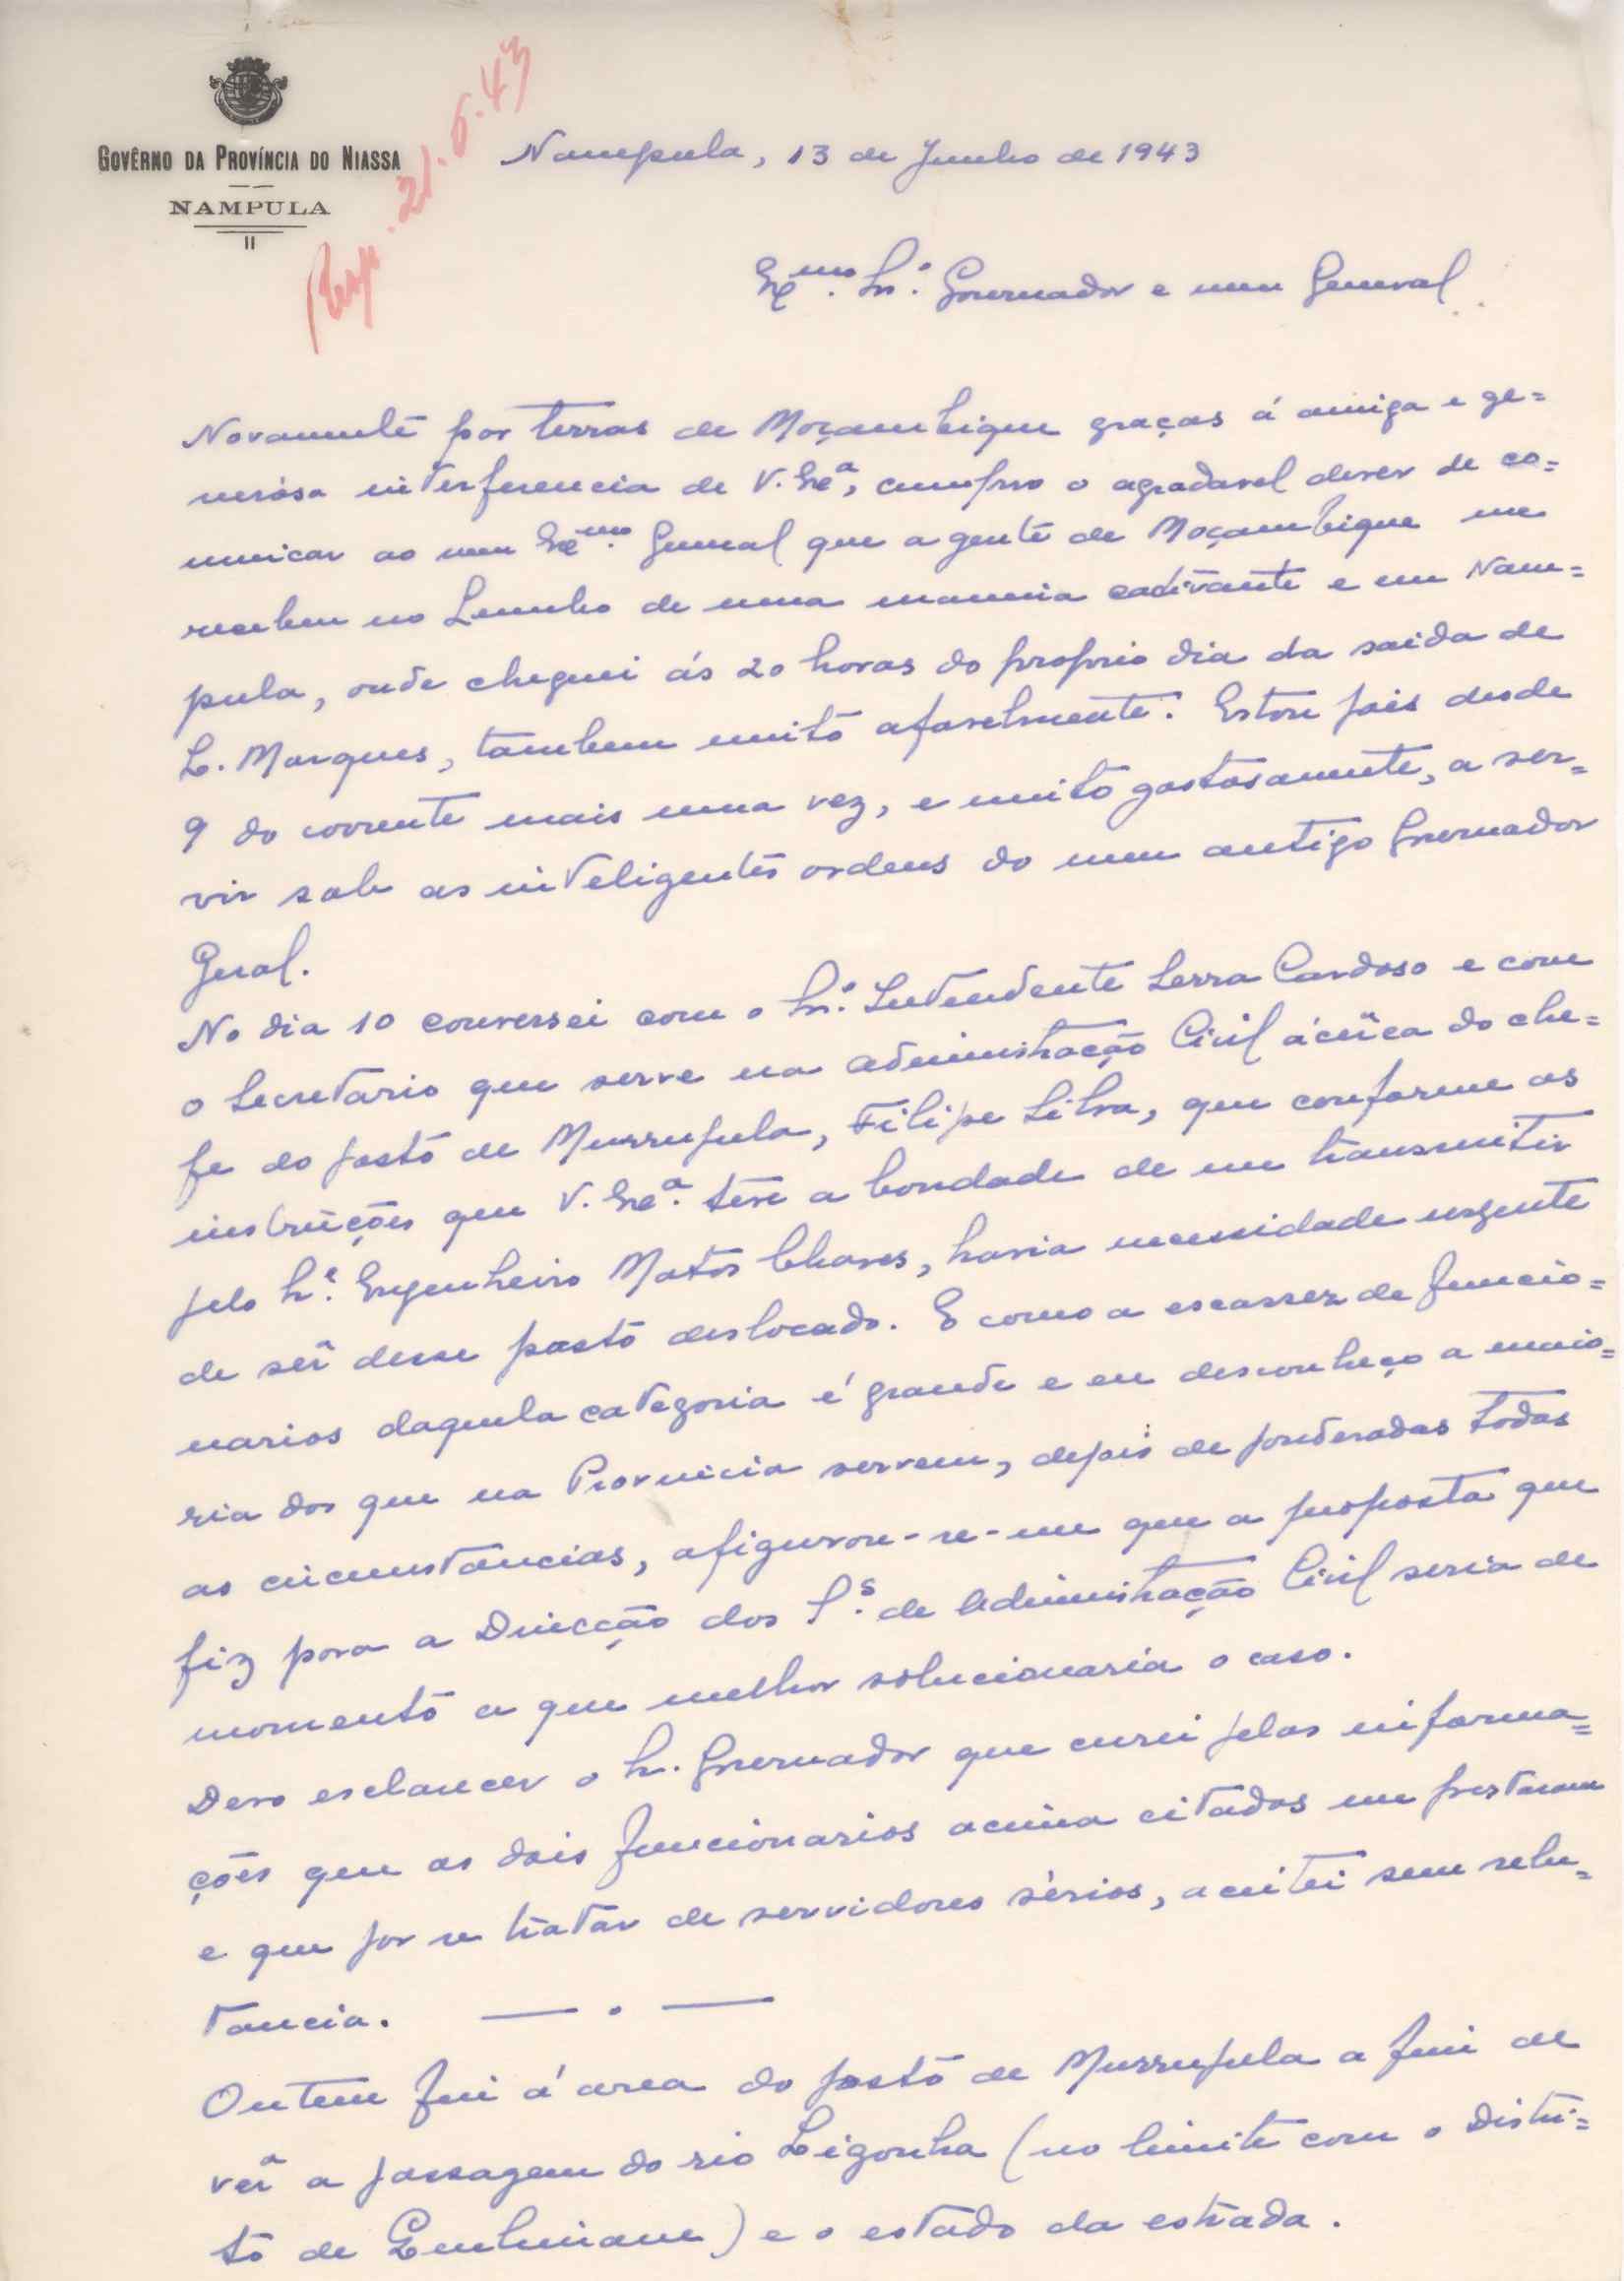 GOVÊRNO DA PROVÍNCIA DO NIASSA
NAMPULA
Resp. 21.6.43
Nampula, 13 de Junho de 1943
Exmo. Sr. Governador e meu General
Novamente por terras de Moçambique graças á amiga e ge=
nerosa interferencia de V. Exª, cumpro o agradavel dever de co=
municar ao meu Exmo. General que a gente de Moçambique me
recebeu no Lumbo de uma maneira cativante e em Nam=
pula, onde cheguei ás 20 horas do proprio dia da saida de
L. Marques, tambem muito afavelmente. Estou pois desde
9 do corrente mais uma vez, e muito gostosamente, a ser=
vir sob as inteligentes ordens do meu antigo Governador
Geral.
No dia 10 conversei com o Sr. Intendente Serra Cardoso e com
o Secretario que serve na Administração Civil ácêrca do che=
fe do posto de Murrupula, Filipe Silva, que conforme as
instruções que V. Exª. teve a bondade de me transmitir
pelo Sr. Engenheiro Matos Chaves, havia necessidade urgente
de ser desse posto deslocado. E como a escassez de funcio=
narios daquela categoria é grande e eu desconheço a maio=
ria dos que na Provincia servem, depois de ponderadas todas
as circunstancias, afigurou-se-me que a proposta que
fiz para a Direcção dos S.s de Administração Civil seria de
momento a que melhor solucionaria o caso.
Devo esclarecer o Sr. Governador que curei pelas informa=
ções que os dois funcionarios acima citados me prestaram
e que por se tratar de servidores sérios, aceitei sem relu=
tancia. — . —
Ontem fui á area do posto de Murrupula a fim de
ver a passagem do rio Ligonha (no limite com o Distri=
to de Quelimane) e o estado da estrada.